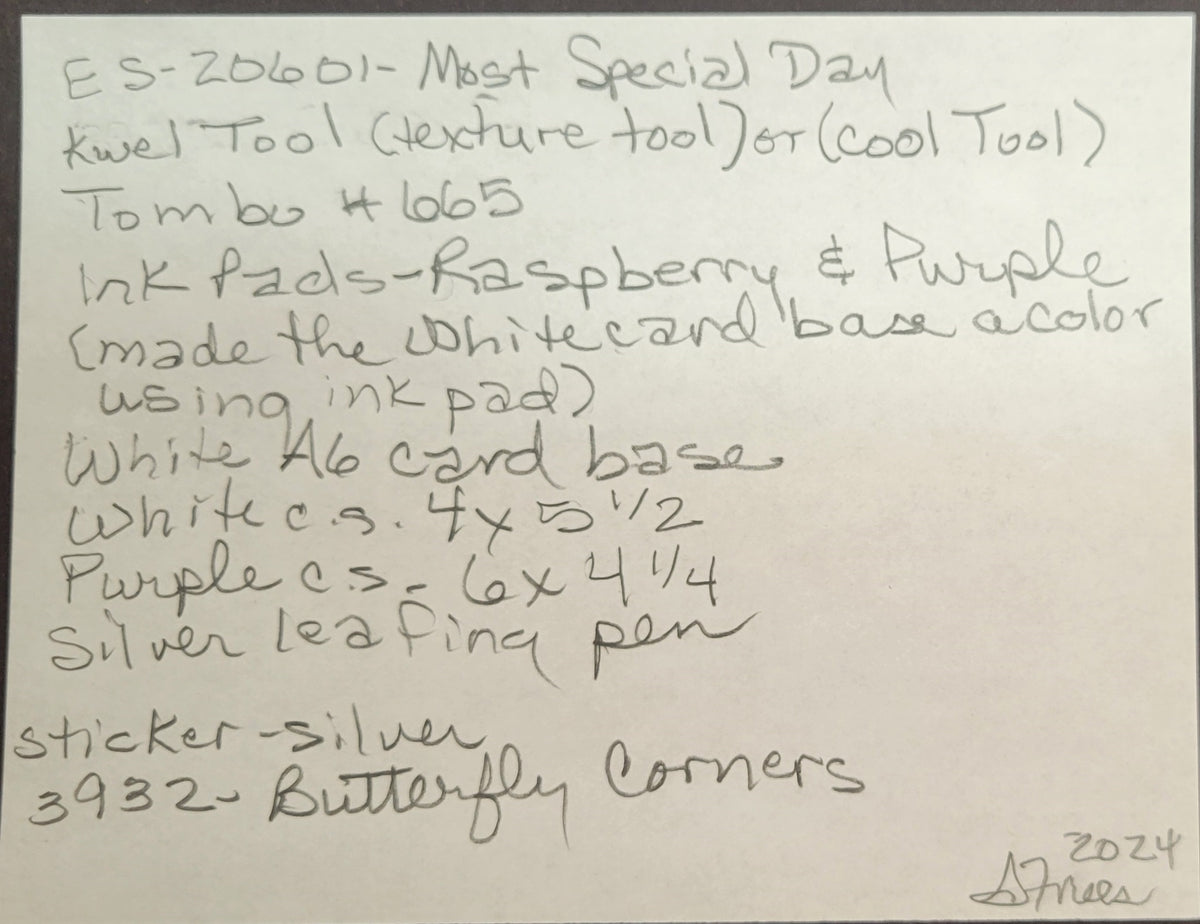 ES-20601- Most Special Day
Kwel Tool (texture tool) or (cool Tool)
Tombo # 665
Ink Pads-Raspberry & Purple
(made the white card base a color
using ink pad)
White A6 card base
White c.s. 4x 5 1/2
Purple c.s. 6x 4 1/4
Silver leafing pen
sticker-silver
3932- Butterfly Corners
2024